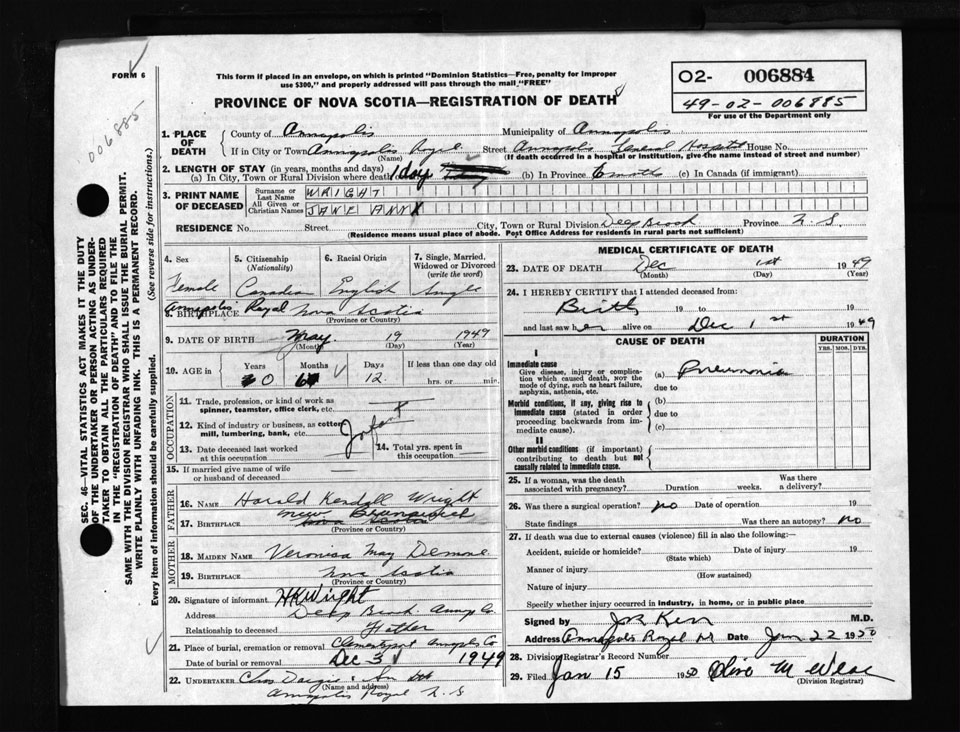 FORM 6
This form if placed in an envelope, on which is printed "Dominion Statistics—Free, penalty for improper
use $300," and properly addressed will pass through the mail "FREE"
PROVINCE OF NOVA SCOTIA—REGISTRATION OF DEATH
O2- 006884
49-02-006885
For use of the Department only
006885
SEC. 46—VITAL STATISTICS ACT MAKES IT THE DUTY
OF THE UNDERTAKER OR PERSON ACTING AS UNDER-
TAKER TO OBTAIN ALL THE PARTICULARS REQUIRED
IN THE "REGISTRATION OF DEATH" AND TO FILE THE
SAME WITH THE DIVISION REGISTRAR WHO SHALL ISSUE THE BURIAL PERMIT.
WRITE PLAINLY WITH UNFADING INK. THIS IS A PERMANENT RECORD.
Every item of information should be carefully supplied. (See reverse side for instructions.)
1. PLACE OF DEATH
County of Annapolis Municipality of Annapolis
If in City or Town Annapolis Royal Street Annapolis General Hospital House No.
(Name) (If death occurred in a hospital or institution, give the name instead of street and number)
2. LENGTH OF STAY (in years, months and days)
(a) In City, Town or Rural Division where death 1 day (b) In Province 6 months (c) In Canada (if immigrant)
3. PRINT NAME OF DECEASED
Surname or Last Name WRIGHT
All Given or Christian Names JANE ANN
RESIDENCE No. Street City, Town or Rural Division Deep Brook Province N.S
(Residence means usual place of abode. Post Office Address for residents in rural parts not sufficient)
4. Sex
Female
5. Citizenship (Nationality)
Canadian
6. Racial Origin
English
7. Single, Married, Widowed or Divorced (write the word)
Single
8. BIRTHPLACE Annapolis Royal Nova Scotia
(Province or Country)
9. DATE OF BIRTH May 19 1949
(Month) (Day) (Year)
10. AGE in
Years 0
Months 6
Days 12
If less than one day old
hrs. or min.
OCCUPATION
11. Trade, profession, or kind of work as
spinner, teamster, office clerk, etc.
12. Kind of industry or business, as cotton
mill, lumbering, bank, etc.
13. Date deceased last worked
at this occupation
14. Total yrs. spent in
this occupation
15. If married give name of wife
or husband of deceased
FATHER
16. NAME Harold Kendall Wright
New Brunswick
17. BIRTHPLACE Nova Scotia
(Province or Country)
MOTHER
18. MAIDEN NAME Veronica May Demone
19. BIRTHPLACE Nova Scotia
(Province or Country)
20. Signature of informant HKWright
Address Deep Brook Annap Co
Relationship to deceased Father
21. Place of burial, cremation or removal Clementsport Annap Co
Date of burial or removal Dec 3 1949
22. UNDERTAKER Chas Dargie
(Name and address)
Annapolis Royal N.S
MEDICAL CERTIFICATE OF DEATH
23. DATE OF DEATH Dec 1st 1949
(Day) (Year)
24. I HEREBY CERTIFY that I attended deceased from:
Birth 19 to 19
and last saw her alive on Dec 1st 1949
CAUSE OF DEATH
DURATION
YRS. MOS. DYS.
I
Immediate cause
Give disease, injury or complica-
tion which caused death, NOT the
mode of dying, such as heart failure,
asphyxia, asthenia, etc.
(a) Pneumonia
due to
Morbid conditions, if any, giving rise to
immediate cause (stated in order
proceeding backwards from im-
mediate cause).
(b)
due to
(c)
II
Other morbid conditions (if important)
contributing to death but not
causally related to immediate cause.
25. If a woman, was the death
associated with pregnancy? Duration weeks. Was there
a delivery?
26. Was there a surgical operation? no Date of operation 19
State findings Was there an autopsy? no
27. If death was due to external causes (violence) fill in also the following:—
Accident, suicide or homicide? Date of injury 19
(State which)
Manner of injury
(How sustained)
Nature of injury
Specify whether injury occurred in industry, in home, or in public place
Signed by J R Kerr M.D.
Address Annapolis Royal Date Jan 22 1950
28. Division Registrar's Record Number
29. Filed Jan 15 1950
(Division Registrar)